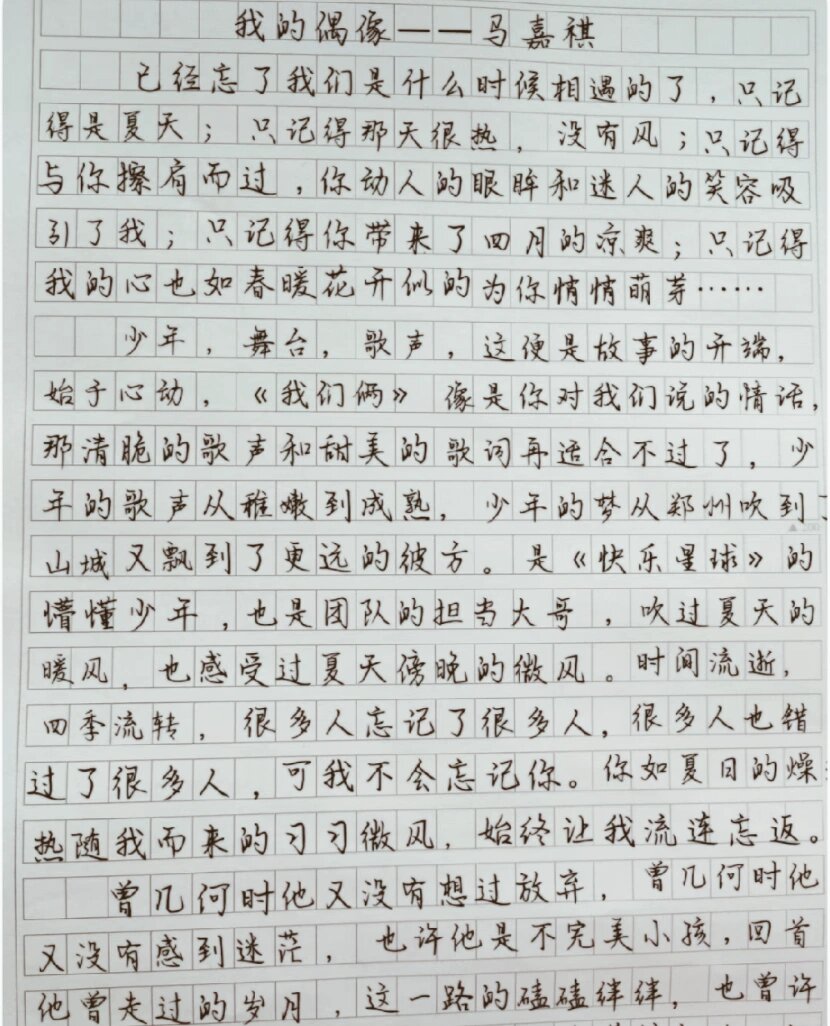 我的偶像——马嘉祺
已经忘了我们是什么时候相遇的了，只记
得是夏天；只记得那天很热，没有风；只记得
与你擦肩而过，你动人的眼眸和迷人的笑容吸
引了我；只记得你带来了四月的凉爽；只记得
我的心也如春暖花开似的为你悄悄萌芽……
少年，舞台，歌声，这便是故事的开端，
始于心动，《我们俩》像是你对我们说的情话，
那清脆的歌声和甜美的歌词再适合不过了，少
年的歌声从稚嫩到成熟，少年的梦从郑州吹到了
山城又飘到了更远的彼方。是《快乐星球》的
懵懂少年，也是团队的担当大哥，吹过夏天的
暖风，也感受过夏天傍晚的微风。时间流逝，
四季流转，很多人忘记了很多人，很多人也错
过了很多人，可我不会忘记你。你如夏日的燥
热随我而来的习习微风，始终让我流连忘返。
曾几何时他又没有想过放弃，曾几何时他
又没有感到迷茫，也许他是不完美小孩，回首
他曾走过的岁月，这一路的磕磕绊绊，也曾许